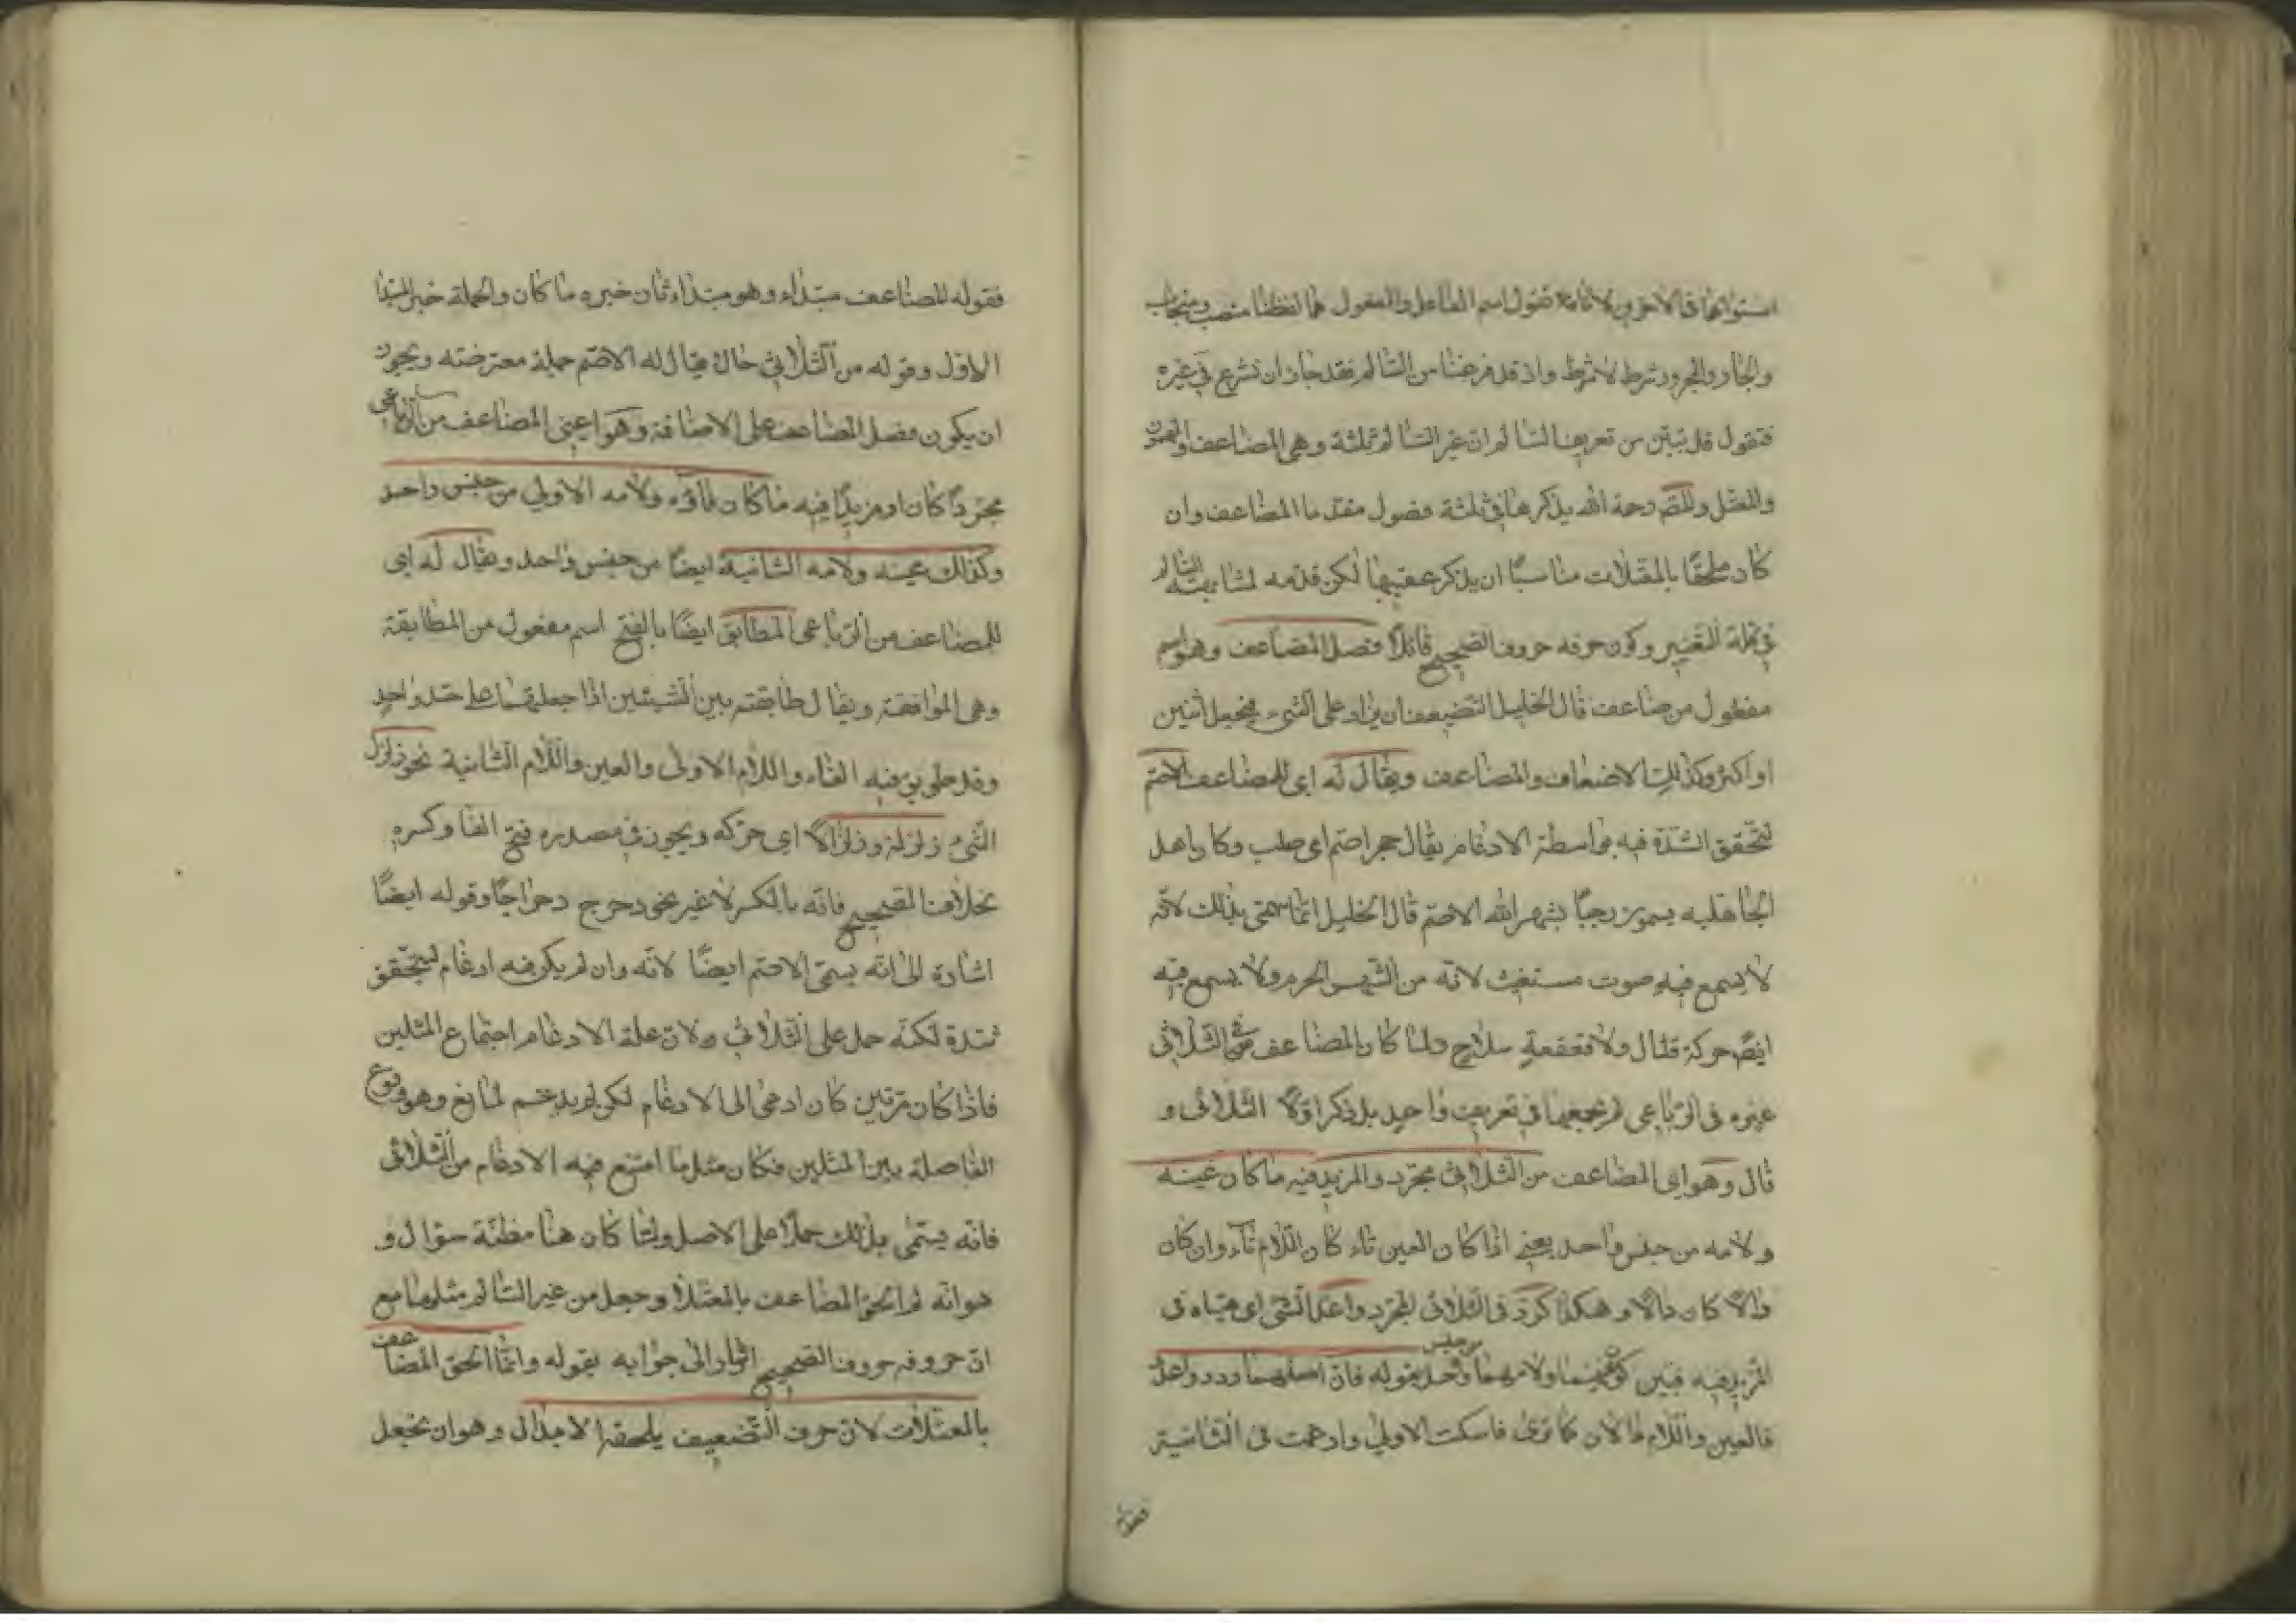 استوائهما في الاخرين لانا نقول اسم الفاعل والمفعول هما لفظنا منصب ومنجاب
والجار والمجرور شرط لا شرط واذ قد فرغنا من السالم فقد جاز ان نشرع في غيره
فنقول قد تبين من تعريف السالم ان غير السالم ثلثة وهي المضاعف والمهموز
والمعتل والمص رحمة الله يذكرها في ثلثة فصول مقدما المضاعف وان
كان ملحقا بالمعتلات مناسبًا ان يذكر عقيبها لكن قدمه لمشابهته السالم
في قلة التغيير وكون حرفه حروف الصحيح قائلًا فصل المضاعف وهو اسم
مفعول من ضاعف قال الخليل التضعيف ان يزاد على الشيء فيجعل اثنين
او اكثر وكذلك الاضعاف والمضاعف ويقال له اي للمضاعف الاصم
لتحقق الشدة فيه بواسطة الادغام يقال حجر اصم اي صلب وكان اهل
الجاهلية يسمون رجبًا بشهر الله الاصم قال الخليل انما سمي بذلك لانه
لا يسمع فيه صوت مستغيث لانه من الشهر الحرم ولا يسمع فيه
ايضً حركة قتال ولا قعقعة سلاح ولما كان المضاعف من الثلاثي
غيره في الرباعي لم يجمعهما في تعريف واحد بل ذكر اولًا الثلاثي و
قال وهو اي المضاعف من الثلاثي مجرد والمزيد فيه ما كان عينه
ولامه من جنس واحد يعني اذا كان العين تاء كان اللام تاء وان كان
دالًا كان دالًا وهكذا كردّ في الثلاثي المجرد واعدّ الشئ اي هيّاه في
المزيد فيه فبين كون عينهما ولامهما من جنس واحد بقوله فان اصلهما ردد واعدد
فالعين واللام دالان كما ترى فاسكنت الاولى وادغمت في الثانية
فقوله
فقوله المضاعف مبتداء وهو مبتداء ثان خبره ما كان والجملة خبر المبتدا
الاول وقوله من الثلاثي حال ويقال له الاصم جملة معترضته ويجوز
ان يكون فصل المضاعف على الاضافة وهو اعني المضاعف من الرباعي
مجردًا كان او مزيدًا فيه ما كان فاؤه ولامه الاولى من جنس واحد
وكذلك عينه ولامه الثانية ايضًا من جنس واحد ويقال له اي
للمضاعف من الرباعي المطابق ايضًا بالفتح اسم مفعول من المطابقة
وهي الموافقة ويقال طابقت بين الشيئين اذا جعلتهما على حد واحد
وقد طوبق فيه الفاء واللام الاولى والعين واللام الثانية نحو زلزل
الشيء زلزلة وزلزالًا اي حركه ويجوز في مصدره فتح الفا وكسره
بخلاف الصحيح فانه بالكسر لا غير نحو دحرج دحراجًا وقوله ايضًا
اشارة الى انه يسمى الاصم ايضًا لانه وان لم يكن فيه ادغام ليتحقق
شدة لكنه حمل على الثلاثي ولان علة الادغام اجتماع المثلين
فاذا كان مرتين كان ادعى الى الادغام لكن لم يدغم لمانع وهو وقوع
الفاصلة بين المثلين فكان مثل ما امتنع فيه الادغام من الثلاثي
فانه يسمى بذلك حملًا على الاصل ولما كان هنا مظنّة سؤال و
هو انه لم الحق المضاعف بالمعتلا وجعل من غير السالم مثلها مع
ان حروفه حروف الصحيح اشار الى جوابه بقوله وانما الحق المضاعف
بالمعتلات لان حرف التضعيف يلحقه الابدال وهو ان يجعل